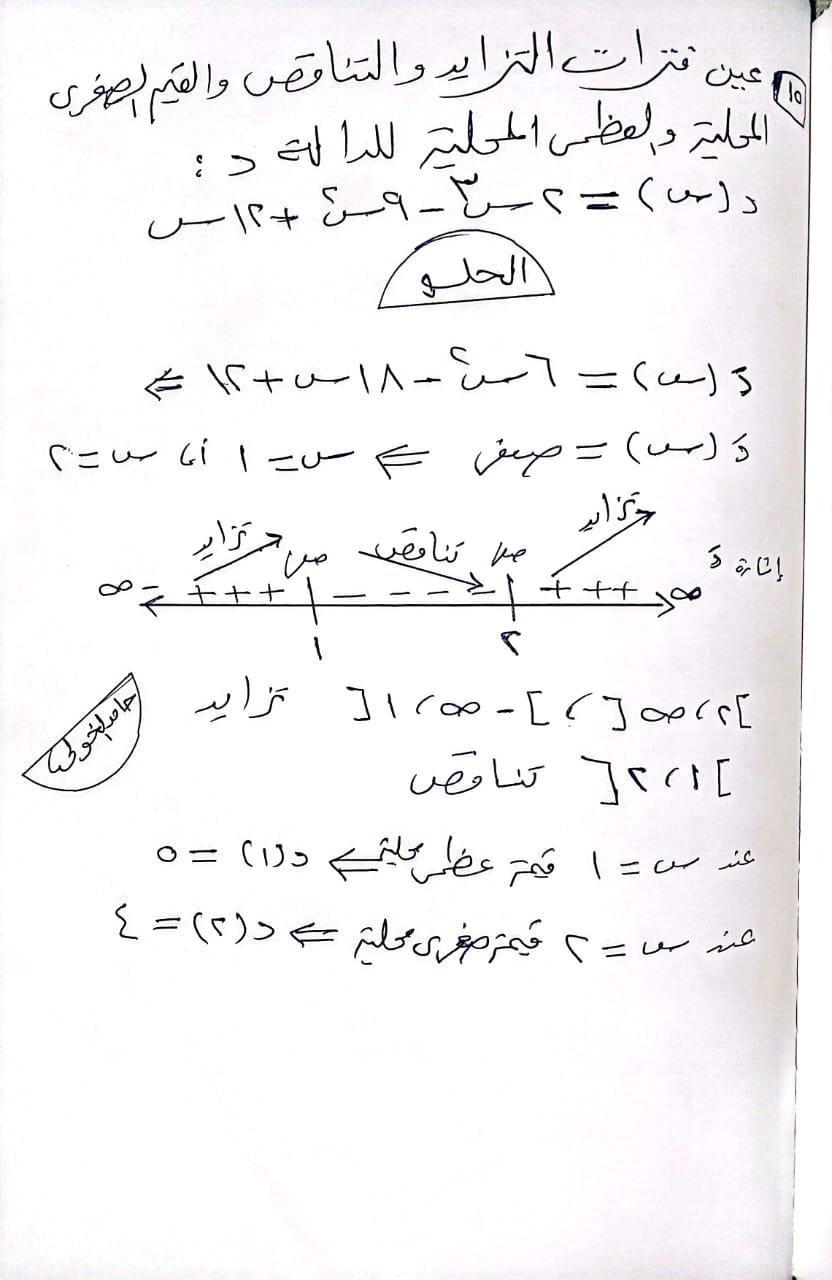 ١٥ عين فترات التزايد والتناقص والقيم الصغرى
المحلية والعظمى المحلية للدالة د :
د (س) = ٢س٣ - ٩س٢ + ١٢س
الحلو
دَ (س) = ٦س٢ - ١٨س + ١٢ ⇐
دَ (س) = صفر ⇐ س = ١ أ، س = ٢
تزايد تناقص تزايد
إشارة دَ ∞ +++ صفر - - - - صفر +++ -∞
٢ ١
]٢، ∞[ ، ]-∞، ١[ تزايد
]١، ٢[ تناقص
عند س = ١ قيمة عظمى محلية ⇐ د(١) = ٥
عند س = ٢ قيمة صغرى محلية ⇐ د(٢) = ٤